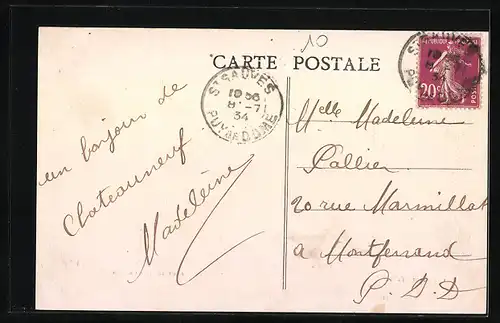 10
CARTE POSTALE
ST SAUVES
19 30
8 -7
34
PUY DE DÔME
20c
POSTES
un bonjour de
Chateauneuf
Madeleine
Melle Madeleine
Pallier
20 rue Marmillat
a Montferrand
P. D. D